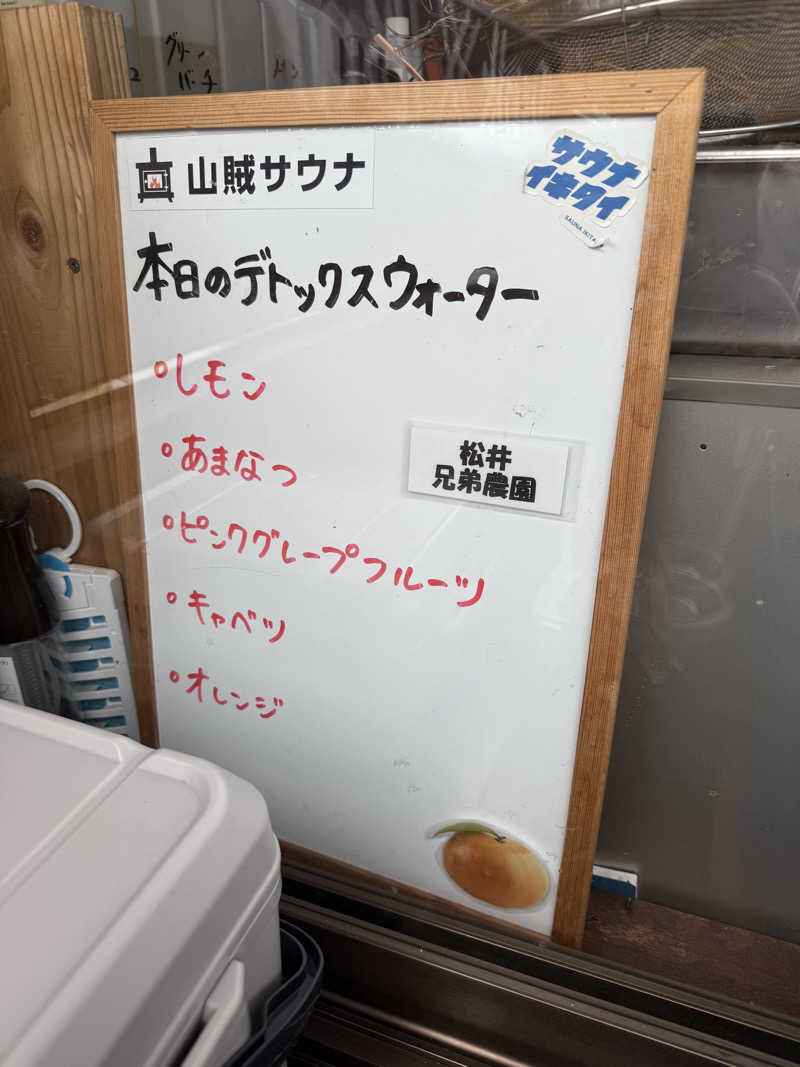 グリーン
バーチ
山賊サウナ
サウナ
イキタイ
SAUNA IKITAI
本日のデトックスウォーター
・レモン
・あまなつ
・ピンクグレープフルーツ
・キャベツ
・オレンジ
松井
兄弟農園